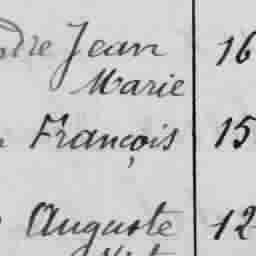 dre Jean 16
Marie
François 15
Auguste 12